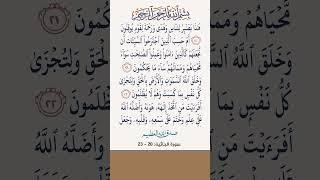 بِسْمِ اللَّهِ الرَّحْمَٰنِ الرَّحِيمِ
هَٰذَا بَصَٰٓئِرُ لِلنَّاسِ وَهُدًى وَرَحْمَةٌ لِّقَوْمٍ يُوقِنُونَ
٢٠ أَمْ حَسِبَ ٱلَّذِينَ ٱجْتَرَحُوا۟ ٱلسَّيِّـَٔاتِ أَن
نَّجْعَلَهُمْ كَٱلَّذِينَ ءَامَنُوا۟ وَعَمِلُوا۟ ٱلصَّٰلِحَٰتِ سَوَآءً
مَّحْيَاهُمْ وَمَمَاتُهُمْ سَآءَ مَا يَحْكُمُونَ ٢١
وَخَلَقَ ٱللَّهُ ٱلسَّمَٰوَٰتِ وَٱلْأَرْضَ بِٱلْحَقِّ وَلِتُجْزَىٰ
كُلُّ نَفْسٍۭ بِمَا كَسَبَتْ وَهُمْ لَا يُظْلَمُونَ ٢٢
أَفَرَءَيْتَ مَنِ ٱتَّخَذَ إِلَٰهَهُۥ هَوَىٰهُ وَأَضَلَّهُ ٱللَّهُ
عَلَىٰ عِلْمٍ وَخَتَمَ عَلَىٰ سَمْعِهِۦ وَقَلْبِهِۦ وَجَعَلَ
صدق الله العظيم
سورة الجاثية: 20 - 23